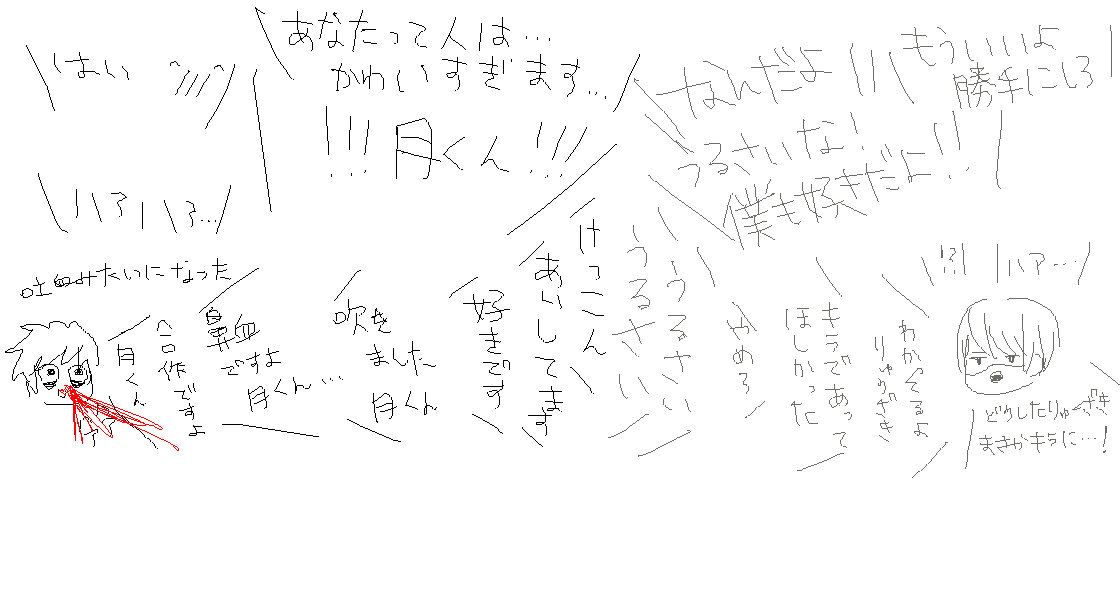 はい
あなたって人は…
かわいすぎます…
!!!月くん!!!
なんだよ
もういいよ
勝手にしろ
うるさいな!
僕も好きだよ!!
ハァハァ…
吐血みたいになった
月くん
合作ですよ
鼻血
ですよ
月くん…
吹き
ました
月くん
好きです
あいしてます
けっこん
うるさい
うるさい
やめろ
キラであって
ほしかった
わかってるよ
りゅうざき
!?
ハァ…
どうしたりゅーざき
まさかキラに…!
ハァ